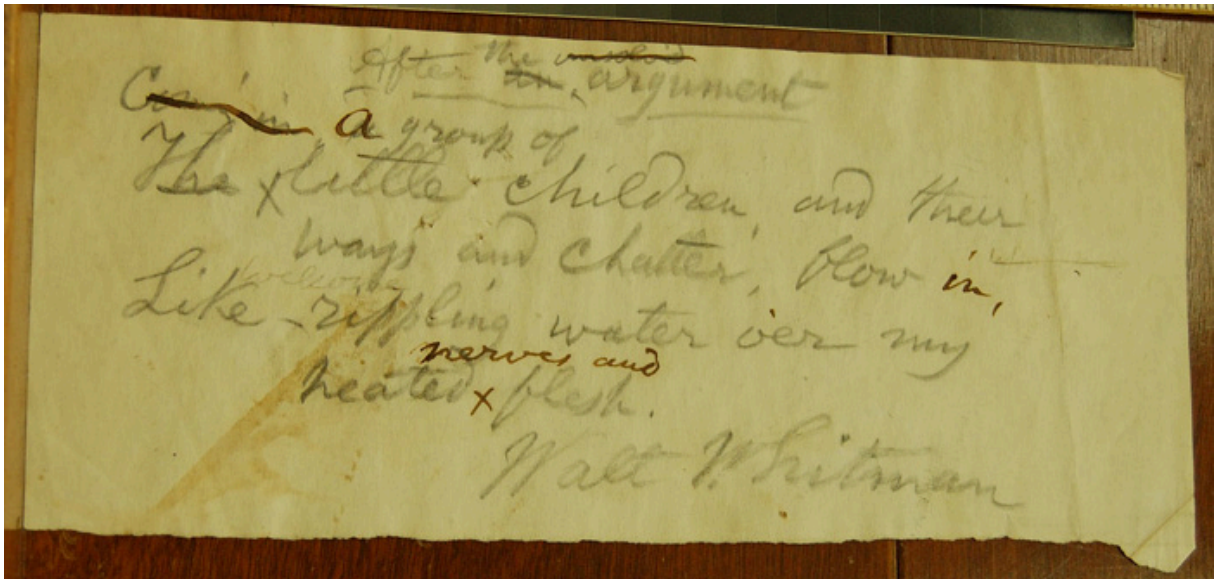 After an the unsolv'd argument
Com'in, a group of
The little children, and their
ways and chatter, flow in,
Like welcome rippling water o'er my
heated nerves and flesh.
Walt Whitman